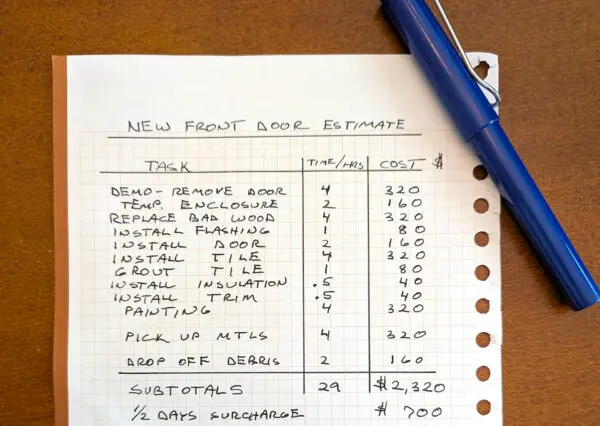 NEW FRONT DOOR ESTIMATE
TASK TIME/HRS COST $
DEMO- REMOVE DOOR 4 320
TEMP. ENCLOSURE 2 160
REPLACE BAD WOOD 4 320
INSTALL FLASHING 1 80
INSTALL DOOR 2 160
INSTALL TILE 4 320
GROUT TILE 1 80
INSTALL INSULATION .5 40
INSTALL TRIM .5 40
PAINTING 4 320
PICK UP MTLS 4 320
DROP OFF DEBRIS 2 160
SUBTOTALS 29 $2,320
1/2 DAYS SURCHARGE $ 700